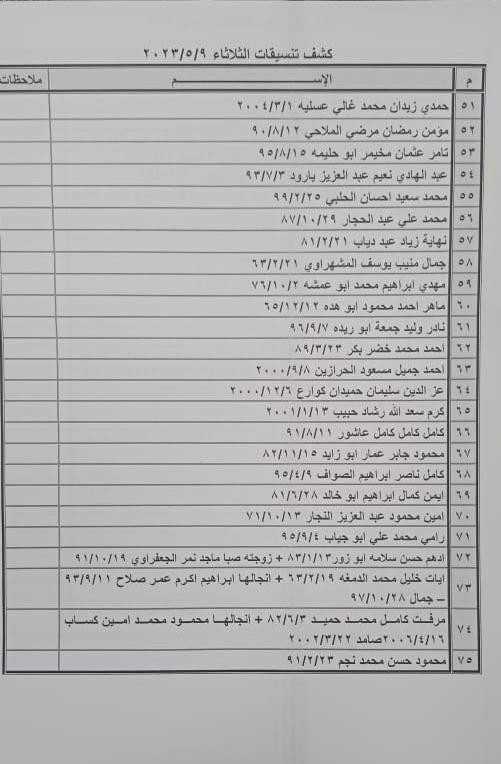 كشف تنسيقات الثلاثاء ٢٠٢٣/٥/٩
م الإســـــم ملاحظات
٥١ حمدي زيدان محمد غالي عسليه ٢٠٠٤/٣/١
٥٢ مؤمن رمضان مرضي الملاحي ٩٠/٨/١٢
٥٣ تامر عثمان مخيمر ابو حليمه ٩٥/٨/١٥
٥٤ عبد الهادي نعيم عبد العزيز بارود ٩٣/٧/٣
٥٥ محمد سعيد احسان الحلبي ٩٩/٢/٢٥
٥٦ محمد علي عبد الحجار ٨٧/١٠/٢٩
٥٧ نهاية زياد عبد دياب ٨١/٢/٢١
٥٨ جمال منيب يوسف المشهراوي ٦٣/٢/٢١
٥٩ مهدي ابراهيم محمد ابو عمشه ٧٦/١٠/٢
٦٠ ماهر احمد محمود ابو هده ٦٥/١٢/١٢
٦١ نادر وليد جمعة ابو ريده ٩٦/٩/٧
٦٢ احمد محمد خضر بكر ٨٩/٣/٢٣
٦٣ احمد جميل مسعود الحرازين ٢٠٠٠/٩/٨
٦٤ عز الدين سليمان حميدان كوارع ٢٠٠٠/١٢/٦
٦٥ كرم سعد الله رشاد حبيب ٢٠٠١/١/١٣
٦٦ كامل كامل كامل عاشور ٩١/٨/١١
٦٧ محمود جابر عمار ابو زايد ٨٢/١١/١٥
٦٨ كامل ناصر ابراهيم الصواف ٩٥/٤/٩
٦٩ ايمن كمال ابراهيم ابو خالد ٨١/٦/٢٨
٧٠ امين محمود عبد العزيز النجار ٧١/١٠/١٣
٧١ رامي محمد علي ابو جياب ٩٥/٩/٤
٧٢ ادهم حسن سلامه ابو زور ٨٣/١/١٣ + زوجته صبا ماجد نمر الجعفراوي ٩١/١٠/١٩
٧٣ ايات خليل محمد الدمغه ٦٣/٢/١٩ + انجالها ابراهيم اكرم عمر صلاح ٩٣/٩/١١
– جمال ٩٧/١٠/٢٨
٧٤ مرفت كامل محمد حميد ٨٢/٦/٣ + انجالها محمود محمد امين كساب
٢٠٠٦/٤/١٦ صامد ٢٠٠٢/٣/٢٢
٧٥ محمود حسن محمد نجم ٩١/٢/٢٣